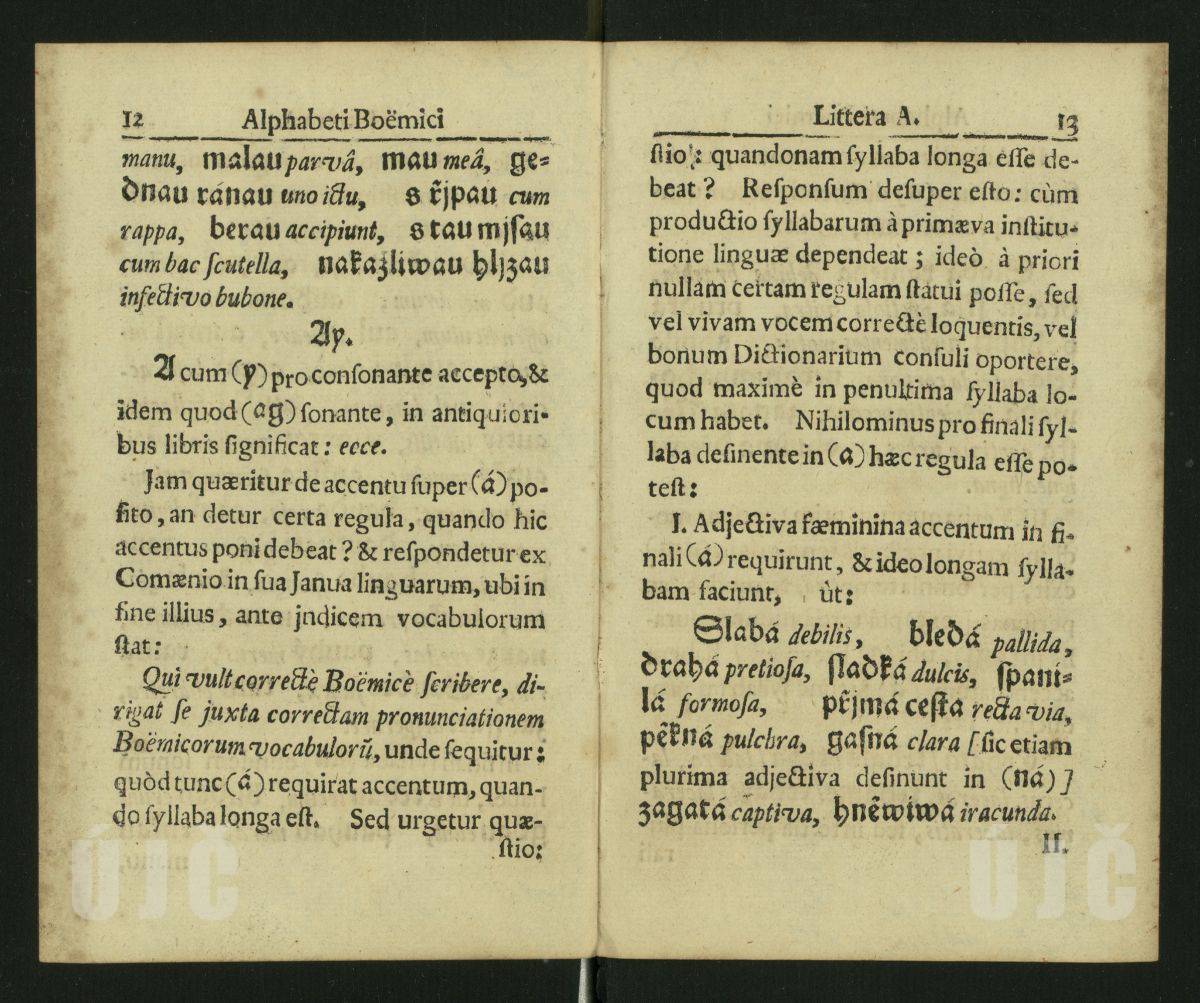 12 Alphabeti Boëmici
manu, malau parvâ, mau meâ, ge=
dnau ránau uno ictu, s řjpau cum
rappa, berau accipiunt, s tau mjsau
cum hac scutella, nakažliwau hljzau
infectivo bubone.
Ay.
A cum (y) pro consonante accepto, &
idem quod (ag) sonante, in antiquiori-
bus libris significat: ecce.
Jam quæritur de accentu super (á) po-
sito, an detur certa regula, quando hic
accentus poni debeat? & respondetur ex
Comænio in sua Janua linguarum, ubi in
fine illius, ante jndicem vocabulorum
stat:
Qui vult correctè Boëmicè scribere, di-
rigat se juxta correctam pronunciationem
Boëmicorum vocabulorũ, unde sequitur:
quòd tunc (á) requirat accentum, quan-
do syllaba longa est. Sed urgetur quæ-
stio:
Littera A. 13
stio: quandonam syllaba longa esse de-
beat? Responsum desuper esto: cùm
productio syllabarum à primæva institu-
tione linguæ dependeat; ideò à priori
nullam certam regulam statui posse, sed
vel vivam vocem correctè loquentis, vel
bonum Dictionarium consuli oportere,
quod maximè in penultima syllaba lo-
cum habet. Nihilominus pro finali syl-
laba desinente in (a) hæc regula esse po-
test:
I. Adjectiva fæminina accentum in fi-
nali (á) requirunt, & ideo longam sylla-
bam faciunt, ùt:
Slabá debilis, bledá pallida,
drahá pretiosa, sladká dulcis, spani=
lá formosa, přjmá cesta recta via,
pěkná pulchra, gasná clara [sic etiam
plurima adjectiva desinunt in (ná)]
zagatá captiva, hněwiwá iracunda.
II.
ÚJČ
ÚJČ